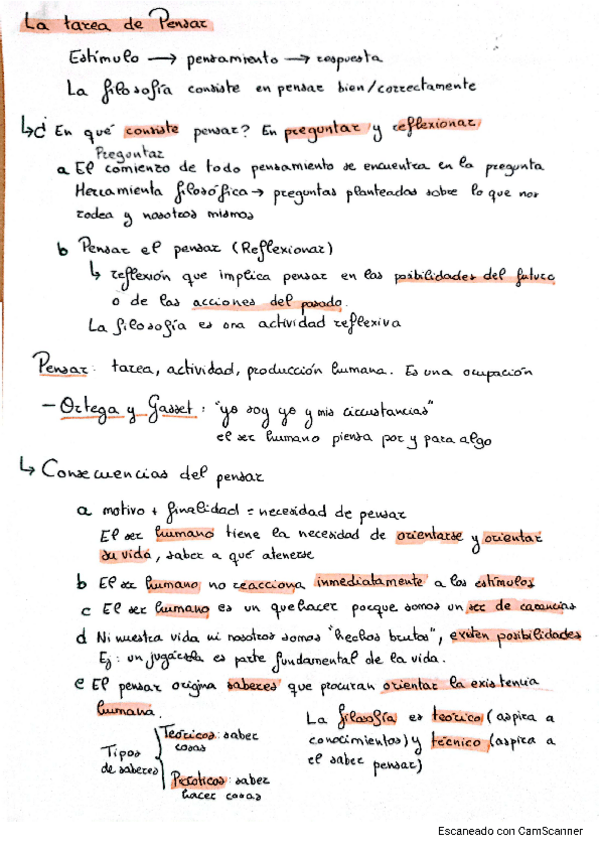 La tarea de Pensar
Estímulo → pensamiento → respuesta
La filosofía consiste en pensar bien/correctamente
↳ ¿En qué consiste pensar? En preguntar y reflexionar
Preguntar
a El comienzo de todo pensamiento se encuentra en la pregunta
Herramienta filosófica → preguntas planteadas sobre lo que nos
rodea y nosotros mismos
b Pensar el pensar (Reflexionar)
↳ reflexión que implica pensar en las posibilidades del futuro
o de las acciones del pasado.
La filosofía es una actividad reflexiva
Pensar: tarea, actividad, producción humana. Es una ocupación
- Ortega y Gasset: "yo soy yo y mis circustancias"
el ser humano piensa por y para algo
↳ Consecuencias del pensar
a motivo + finalidad = necesidad de pensar
El ser humano tiene la necesidad de orientarse y orientar
su vida, saber a qué atenerse
b El ser humano no reacciona inmediatamente a los estímulos
c El ser humano es un quehacer porque somos un ser de carencias
d Ni nuestra vida ni nosotros somos "hechos brutos", existen posibilidades
Ej: un es parte fundamental de la vida.
e El pensar origina saberes que procuran orientar la existencia
humana.
Tipos
de saberes
Teóricos: saber
cosas
Prácticos: saber
hacer cosas
La filosofía es teórico (aspira a
conocimientos) y técnico (aspira a
el saber pensar)
Escaneado con CamScanner